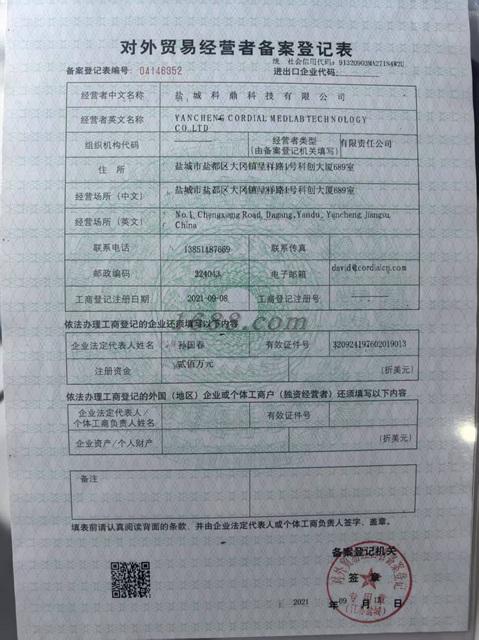 对外贸易经营者备案登记表
统一社会信用代码: 91320903MA27184W2U
备案登记表编号: 04146352
进出口企业代码:
经营者中文名称 盐城科鼎科技有限公司
经营者英文名称 YANCHENG CORDIAL MEDLABTECHNOLOGY CO.LTD
组织机构代码 经营者类型 (由备案登记机关填写) 有限责任公司
住 所 盐城市盐都区大冈镇呈祥路1号科创大厦689室
经营场所(中文) 盐城市盐都区大冈镇呈祥路1号科创大厦689室
经营场所(英文) No.1, Chengxiang Road, Dagang, Yandu, Yancheng Jiangsu, China
联系电话 13851487669 联系传真
邮政编码 224043 电子邮箱 david@cordialcn.com
工商登记注册日期 2021-09-08 工商登记注册号
1688.com
依法办理工商登记的企业还须填写以下内容
企业法定代表人姓名 孙国春 有效证件号 320924197602019013
注册资金 贰佰万元 (折美元)
依法办理工商登记的外国(地区)企业或个体工商户(独资经营者)还须填写以下内容
企业法定代表人/ 个体工商负责人姓名 有效证件号
企业资产/个人财产 (折美元)
备注
填表前请认真阅读背面的条款，并由企业法定代表人或个体工商负责人签字、盖章。
备案登记机关
签 章
专用章
(江苏盐城)
2021 年 09 月 日